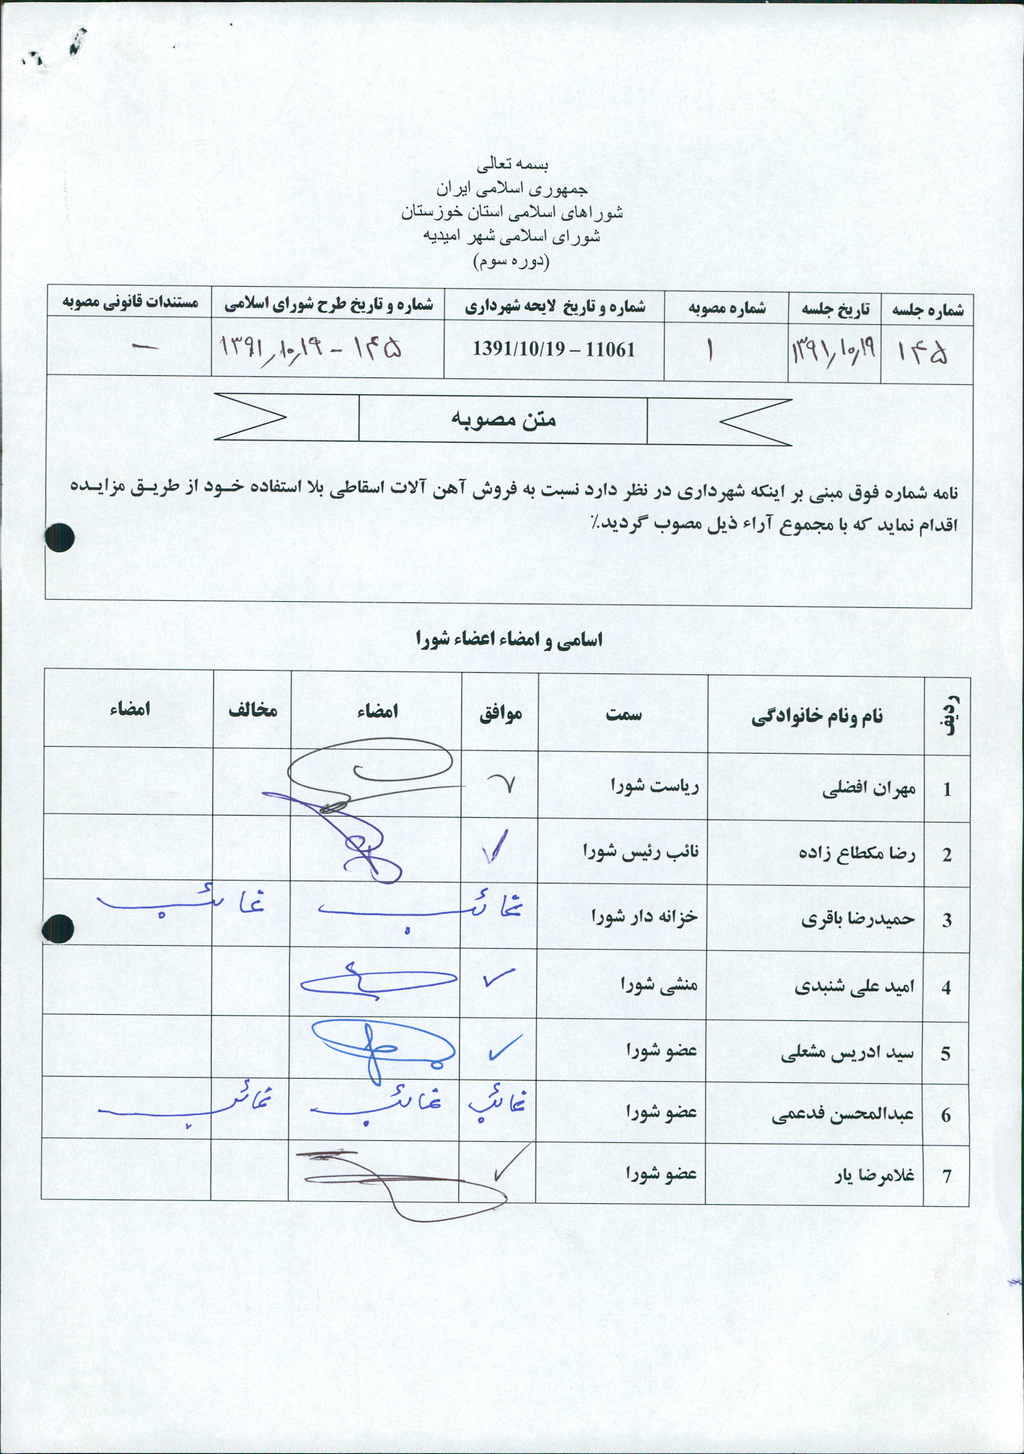 بسمه تعالی
جمهوری اسلامی ایران
شوراهای اسلامی استان خوزستان
شورای اسلامی شهر امیدیه
(دوره سوم)
شماره جلسه تاریخ جلسه شماره مصوبه شماره و تاریخ لایحه شهرداری شماره و تاریخ طرح شورای اسلامی مستندات قانونی مصوبه
۱۴۵ ۱۳۹۱٫۱۰٫۱۹ ۱ 11061 – 1391/10/19 ۱۴۵ – ۱۳۹۱٫۱۰٫۱۹ –
متن مصوبه
نامه شماره فوق مبنی بر اینکه شهرداری در نظر دارد نسبت به فروش آهن آلات اسقاطی بلا استفاده خود از طریق مزایده
اقدام نماید که با مجموع آراء ذیل مصوب گردید.٪
اسامی و امضاء اعضاء شورا
ردیف نام ونام خانوادگی سمت موافق امضاء مخالف امضاء
1 مهران افضلی ریاست شورا
2 رضا مکطاع زاده نائب رئیس شورا ✓
3 حمیدرضا باقری خزانه دار شورا غائب غائب
4 امید علی شنبدی منشی شورا ✓
5 سید ادریس مشعلی عضو شورا ✓
6 عبدالمحسن فدعمی عضو شورا غائب غائب غائب
7 غلامرضا یار عضو شورا ✓